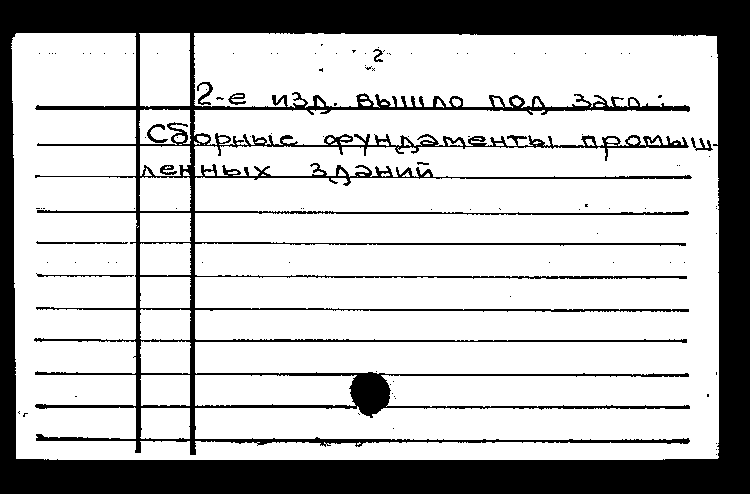 2
2-е изд. вышло под загл.:
Сборные фундаменты промыш-
ленных зданий